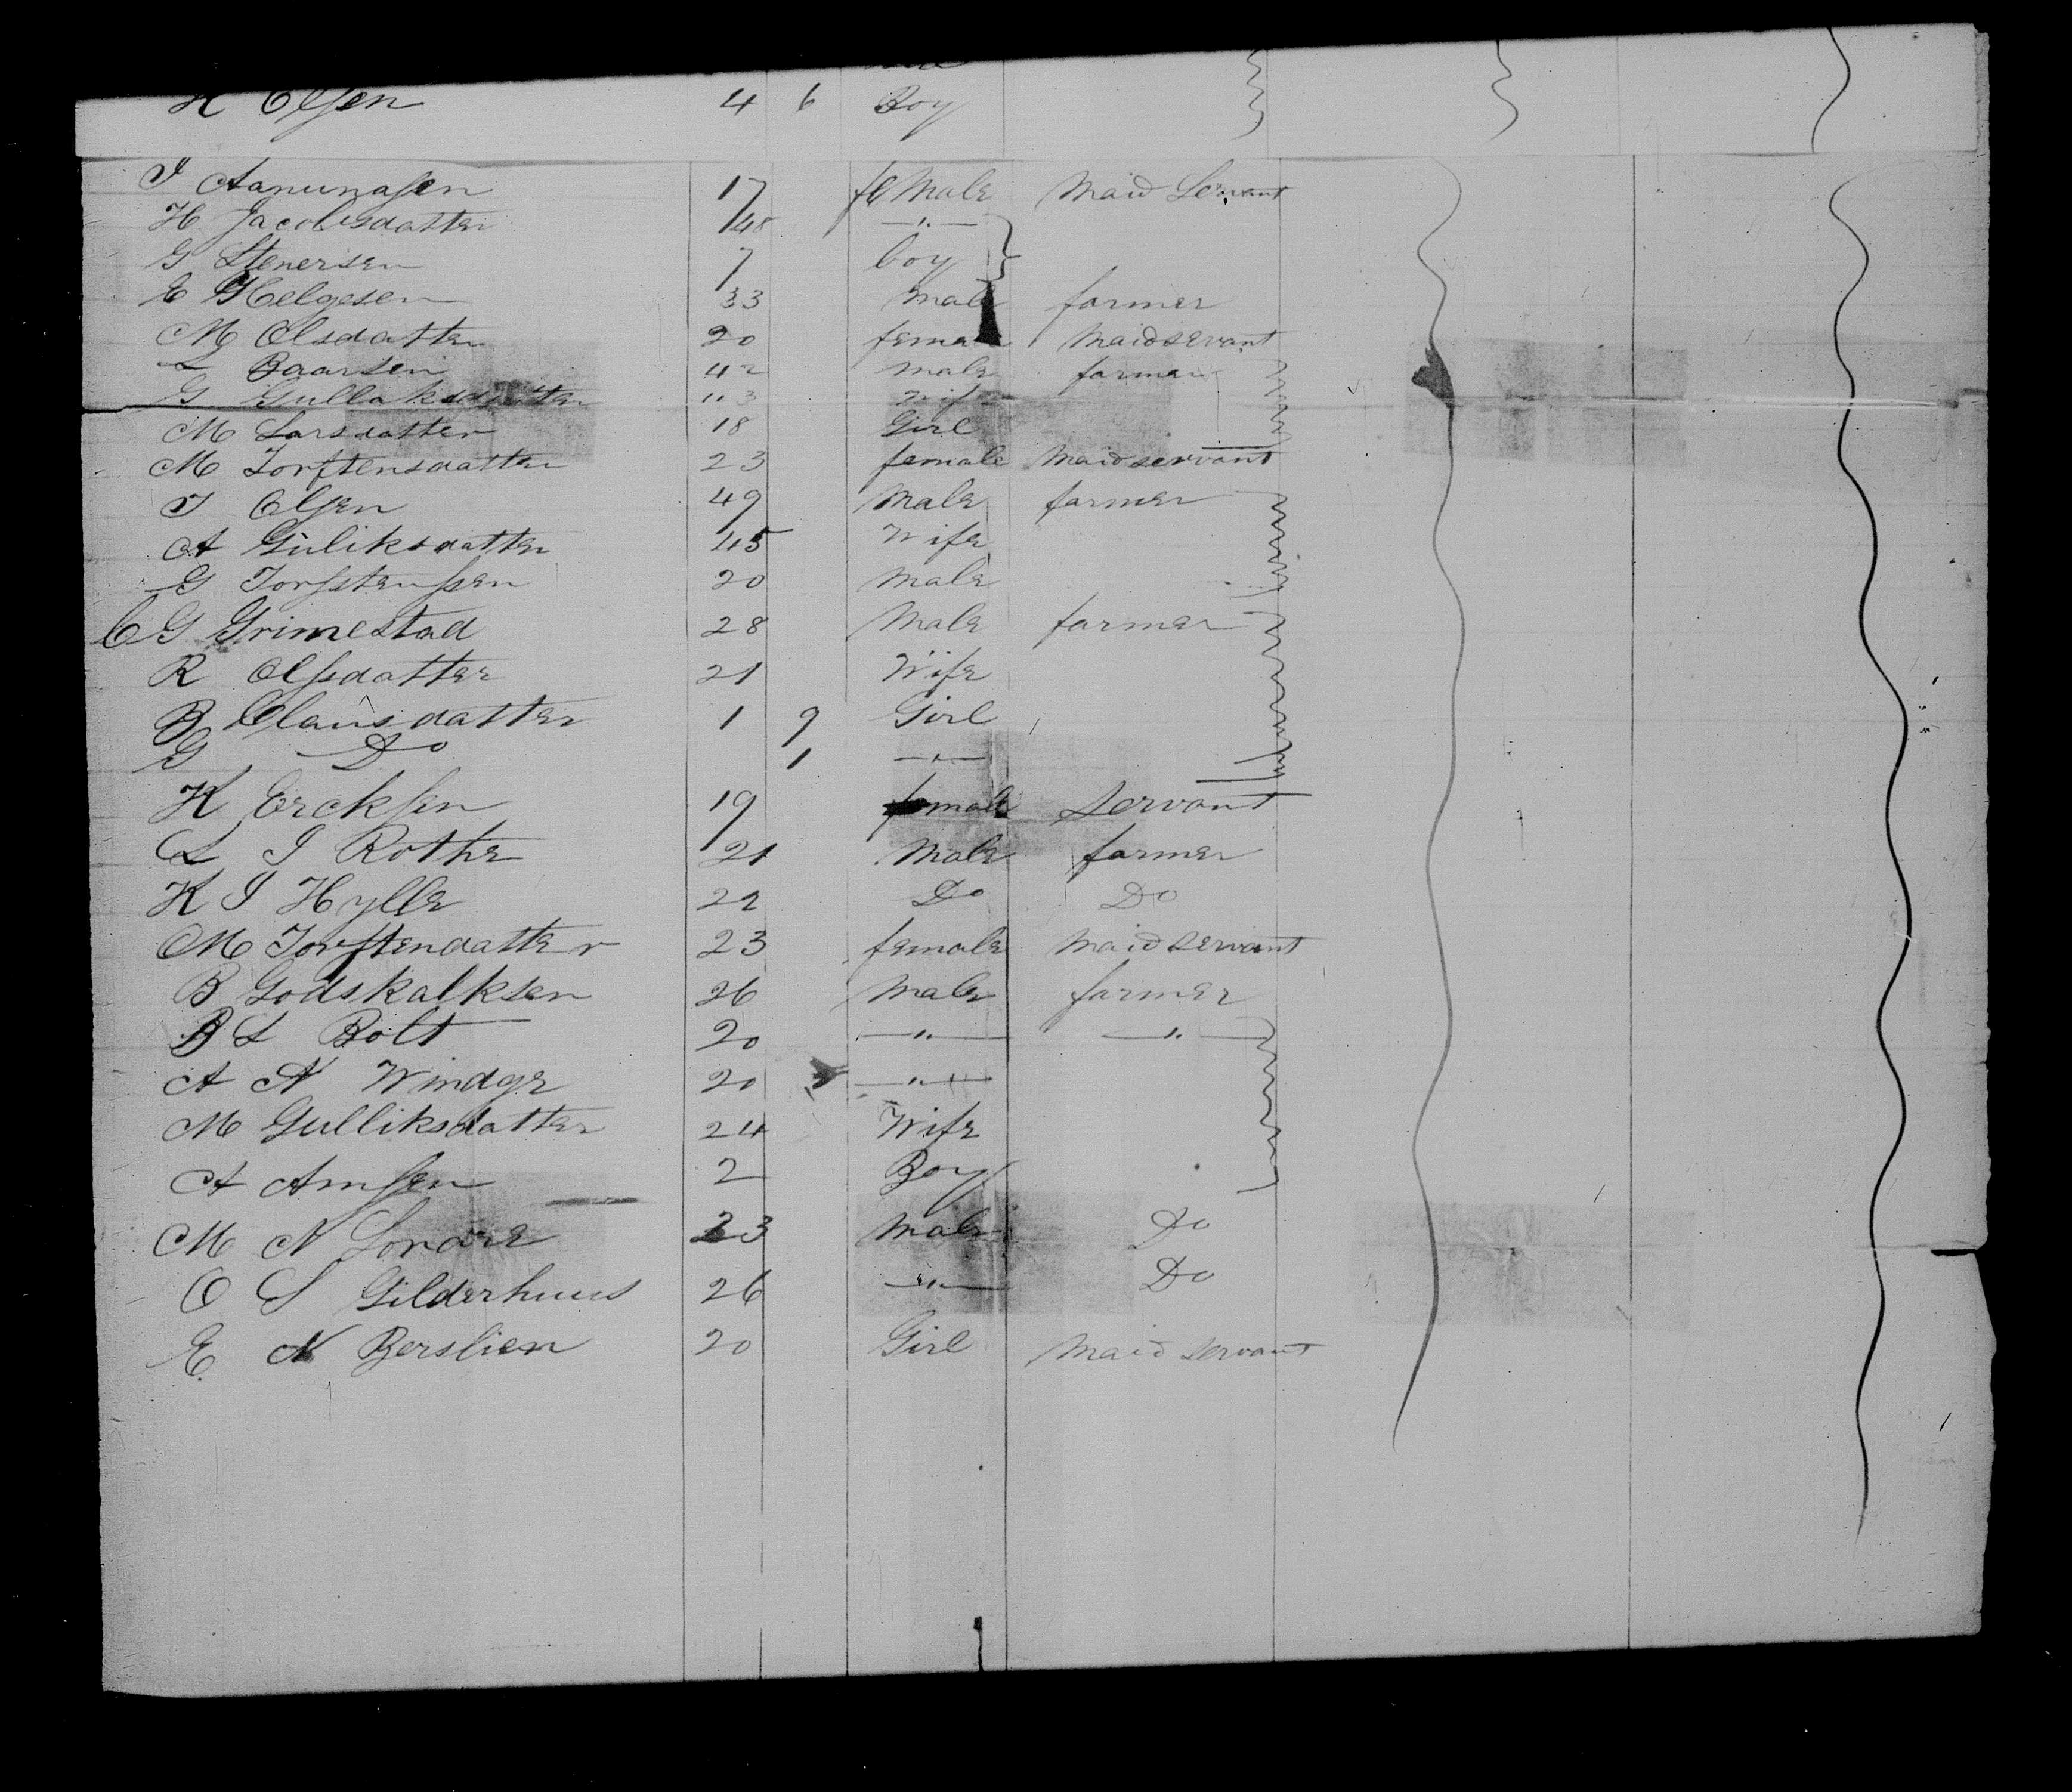 K Olsen 4 6 Boy
I Aanunasen 17 feMale Maid Servant
H Jacobsdatter 48 —"—
G Stenersen 7 boy
E Helgesen 33 male farmer
M Olsdatter 20 female Maidservant
L Baarsen 42 male farmer
G Gullaksdatter wife
M Larsdatter 18 Girl
M Torstensdatter 23 female Maidservant
T Olsen 49 Male farmer
A Guliksdatter 45 Wife
G Torsstenssen 20 male
C G Grimestad 28 Male farmer
R Olssdatter 21 Wife
B Clausdatter 1 9 Girl
G Do 1 —"—
K Ercksen 19 female Servant
L I Rothe 21 Male farmer
K I Hylle 22 Do Do
M Torstendatter 23 female maid servant
B Godskalksen 26 Male farmer
B L Bolt 20 —"— —"—
A N Windge 20 —"—
M Gulliksdatter 24 Wife
A Arnsen 2 Boy
M N 23 Male Do
O S Gilderhuus 26 —"— Do
E N Berslien 20 Girl Maid servant